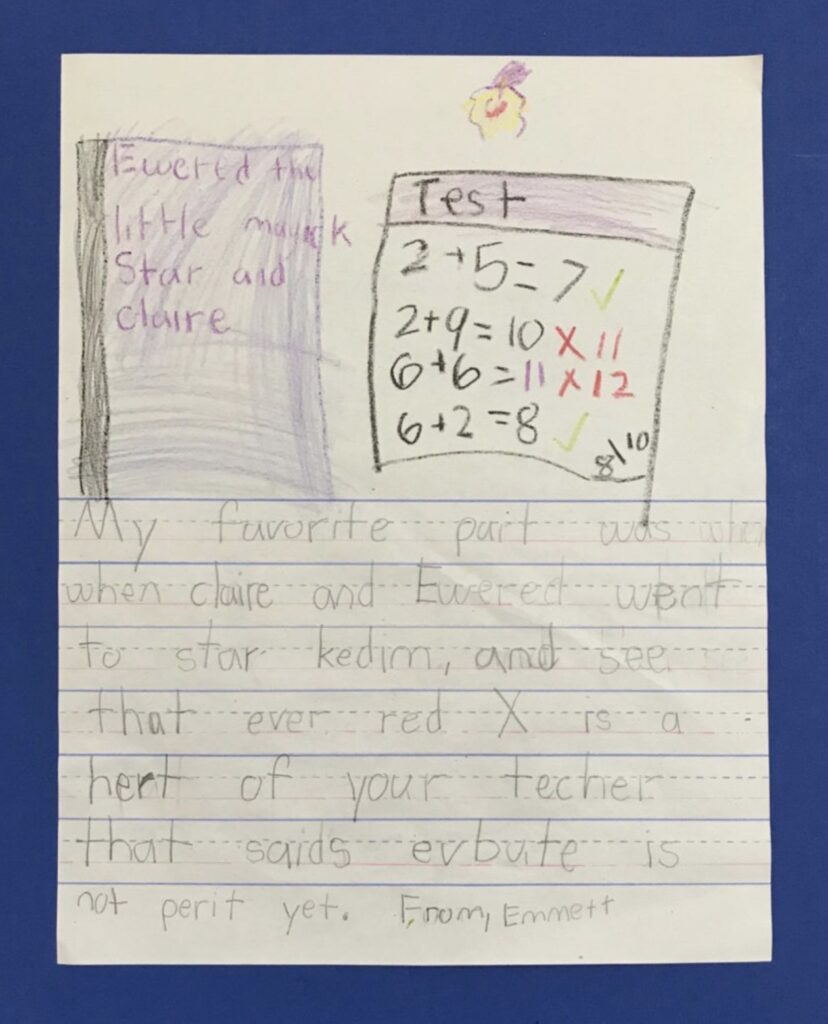 Ewered the
little mayick
Star and
claire
Test
2+5=7 ✓
2+9=10 X 11
6+6=11 X 12
6+2=8 ✓
8\10
My favorite part was when
when claire and Ewered went
to star kedim, and see see
that ever red X is a
hert of your techer
that saids evbute is
not perit yet. From, Emmett